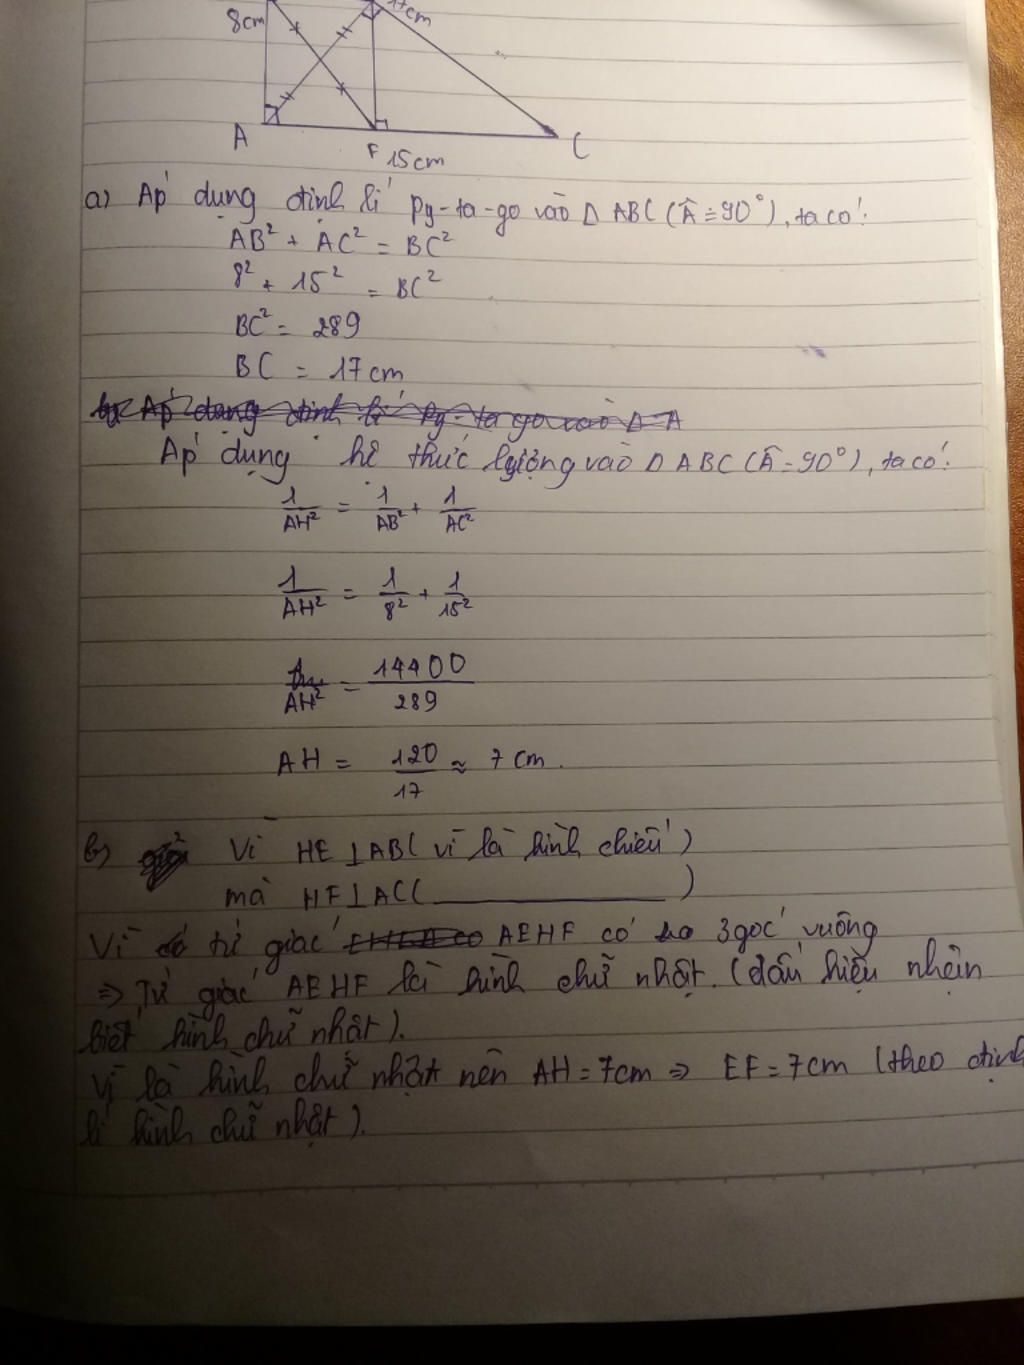 8cm
17cm
A
F 15cm
C
a) Áp dụng định lí Py-ta-go vào Δ ABC (Â = 90°), ta có:
AB² + AC² = BC²
8² + 15² = BC²
BC² = 289
BC = 17cm
Áp dụng định lí Py-ta go vào Δ A
Áp dụng hệ thức lượng vào Δ ABC (Â = 90°), ta có:
1/AH² = 1/AB² + 1/AC²
1/AH² = 1/8² + 1/15²
AH² = 14400/289
AH = 120/17 ≈ 7 cm.
b) Vì HE ⊥ AB (vì là hình chiếu)
mà HF ⊥ AC (
)
Vì tứ giác AEHF có 3 góc vuông
⇒ Tứ giác AEHF là hình chữ nhật. (dấu hiệu nhận
biết hình chữ nhật).
Vì là hình chữ nhật nên AH = 7cm ⇒ EF = 7cm (theo định
lí hình chữ nhật).